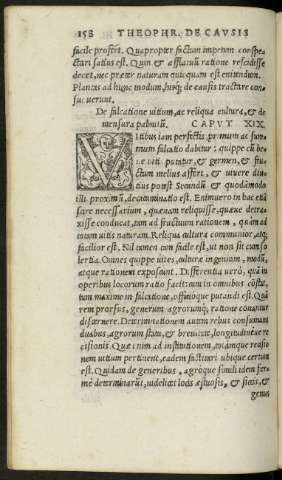 158 THEOPHR. DE CAVSIS
facile profert. Quapropter factum impetum conspe
ctari satius est. Quin & afflatuū ratione rescidisse
decet, nec præter naturam quicquam est enitendum.
Plantas ad hunc modum, hisq; de causis tractare con
sueuerunt.
De falcatione uitium, ac reliqua cultura, & de
mensura pabuli. CAPVT XIX.
VItibus iam perfectis primum ac sum
mum falcatio dabitur: quippe cū be
ne uiti putetur, & germen, & fru
ctum melius affert, & uiuere diu
tius potest. Secundū & quodāmodo
illi proximū, deacuminatio est. Enimuero in hac etiā
scire necessarium, quænam reliquisse, quæue detra-
xisse conducat, tum ad fructuum rationem, quàm ad
totam uitis naturam. Reliqua cultura communior, atq;
facilior est. Nil tamen tam facile est, ut non sit cum so
lertia. Omnes quippe uites, culturæ ingenium, modū,
atque rationem exposcunt. Differentia uerò, quā in
operibus locorum ratio facit, cum in omnibus cōstat,
tum maxime in falcatione, offinioque putandi est. Qua
rem prorsus, generum agrorumq; ratione conantur
discernere. Determinationem autem rebus consumant
duabus, agrorum statu, & breuitate, longitudinéue re
cisionis. Quæ enim ad institutionem, utcunque rasio
nem uitium pertinent, eadem factitari ubique certum
est. Quidam de generibus, agróque simili idem fer
mè determinarūt, uidelicet locis æstuosis, & siccis, &
genus